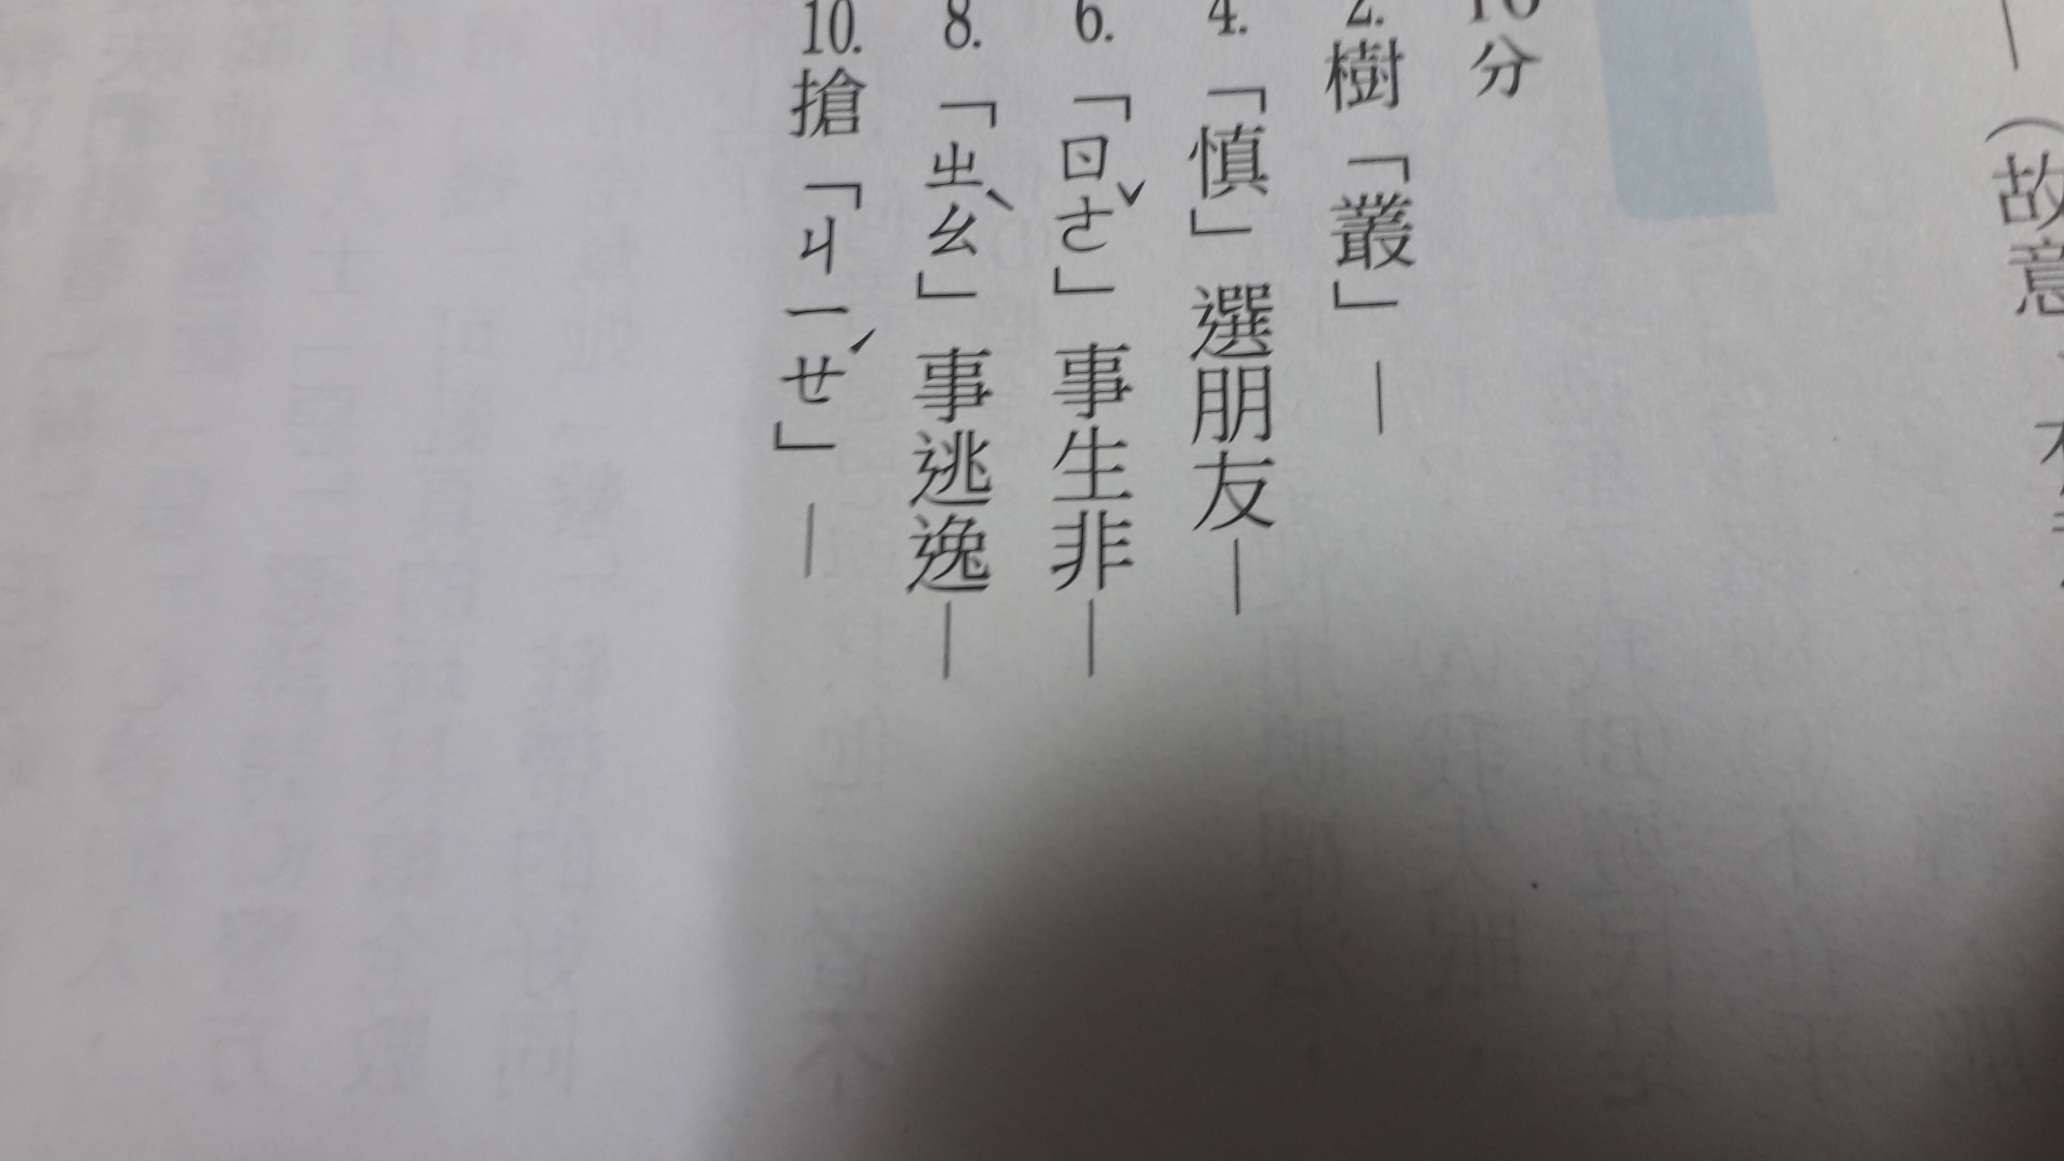 （故意
10分
2.樹「叢」—
4.「慎」選朋友—
6.「ㄖㄜˇ」事生非—
8.「ㄓㄠˋ」事逃逸—
10.搶「ㄐㄧㄝˊ」—